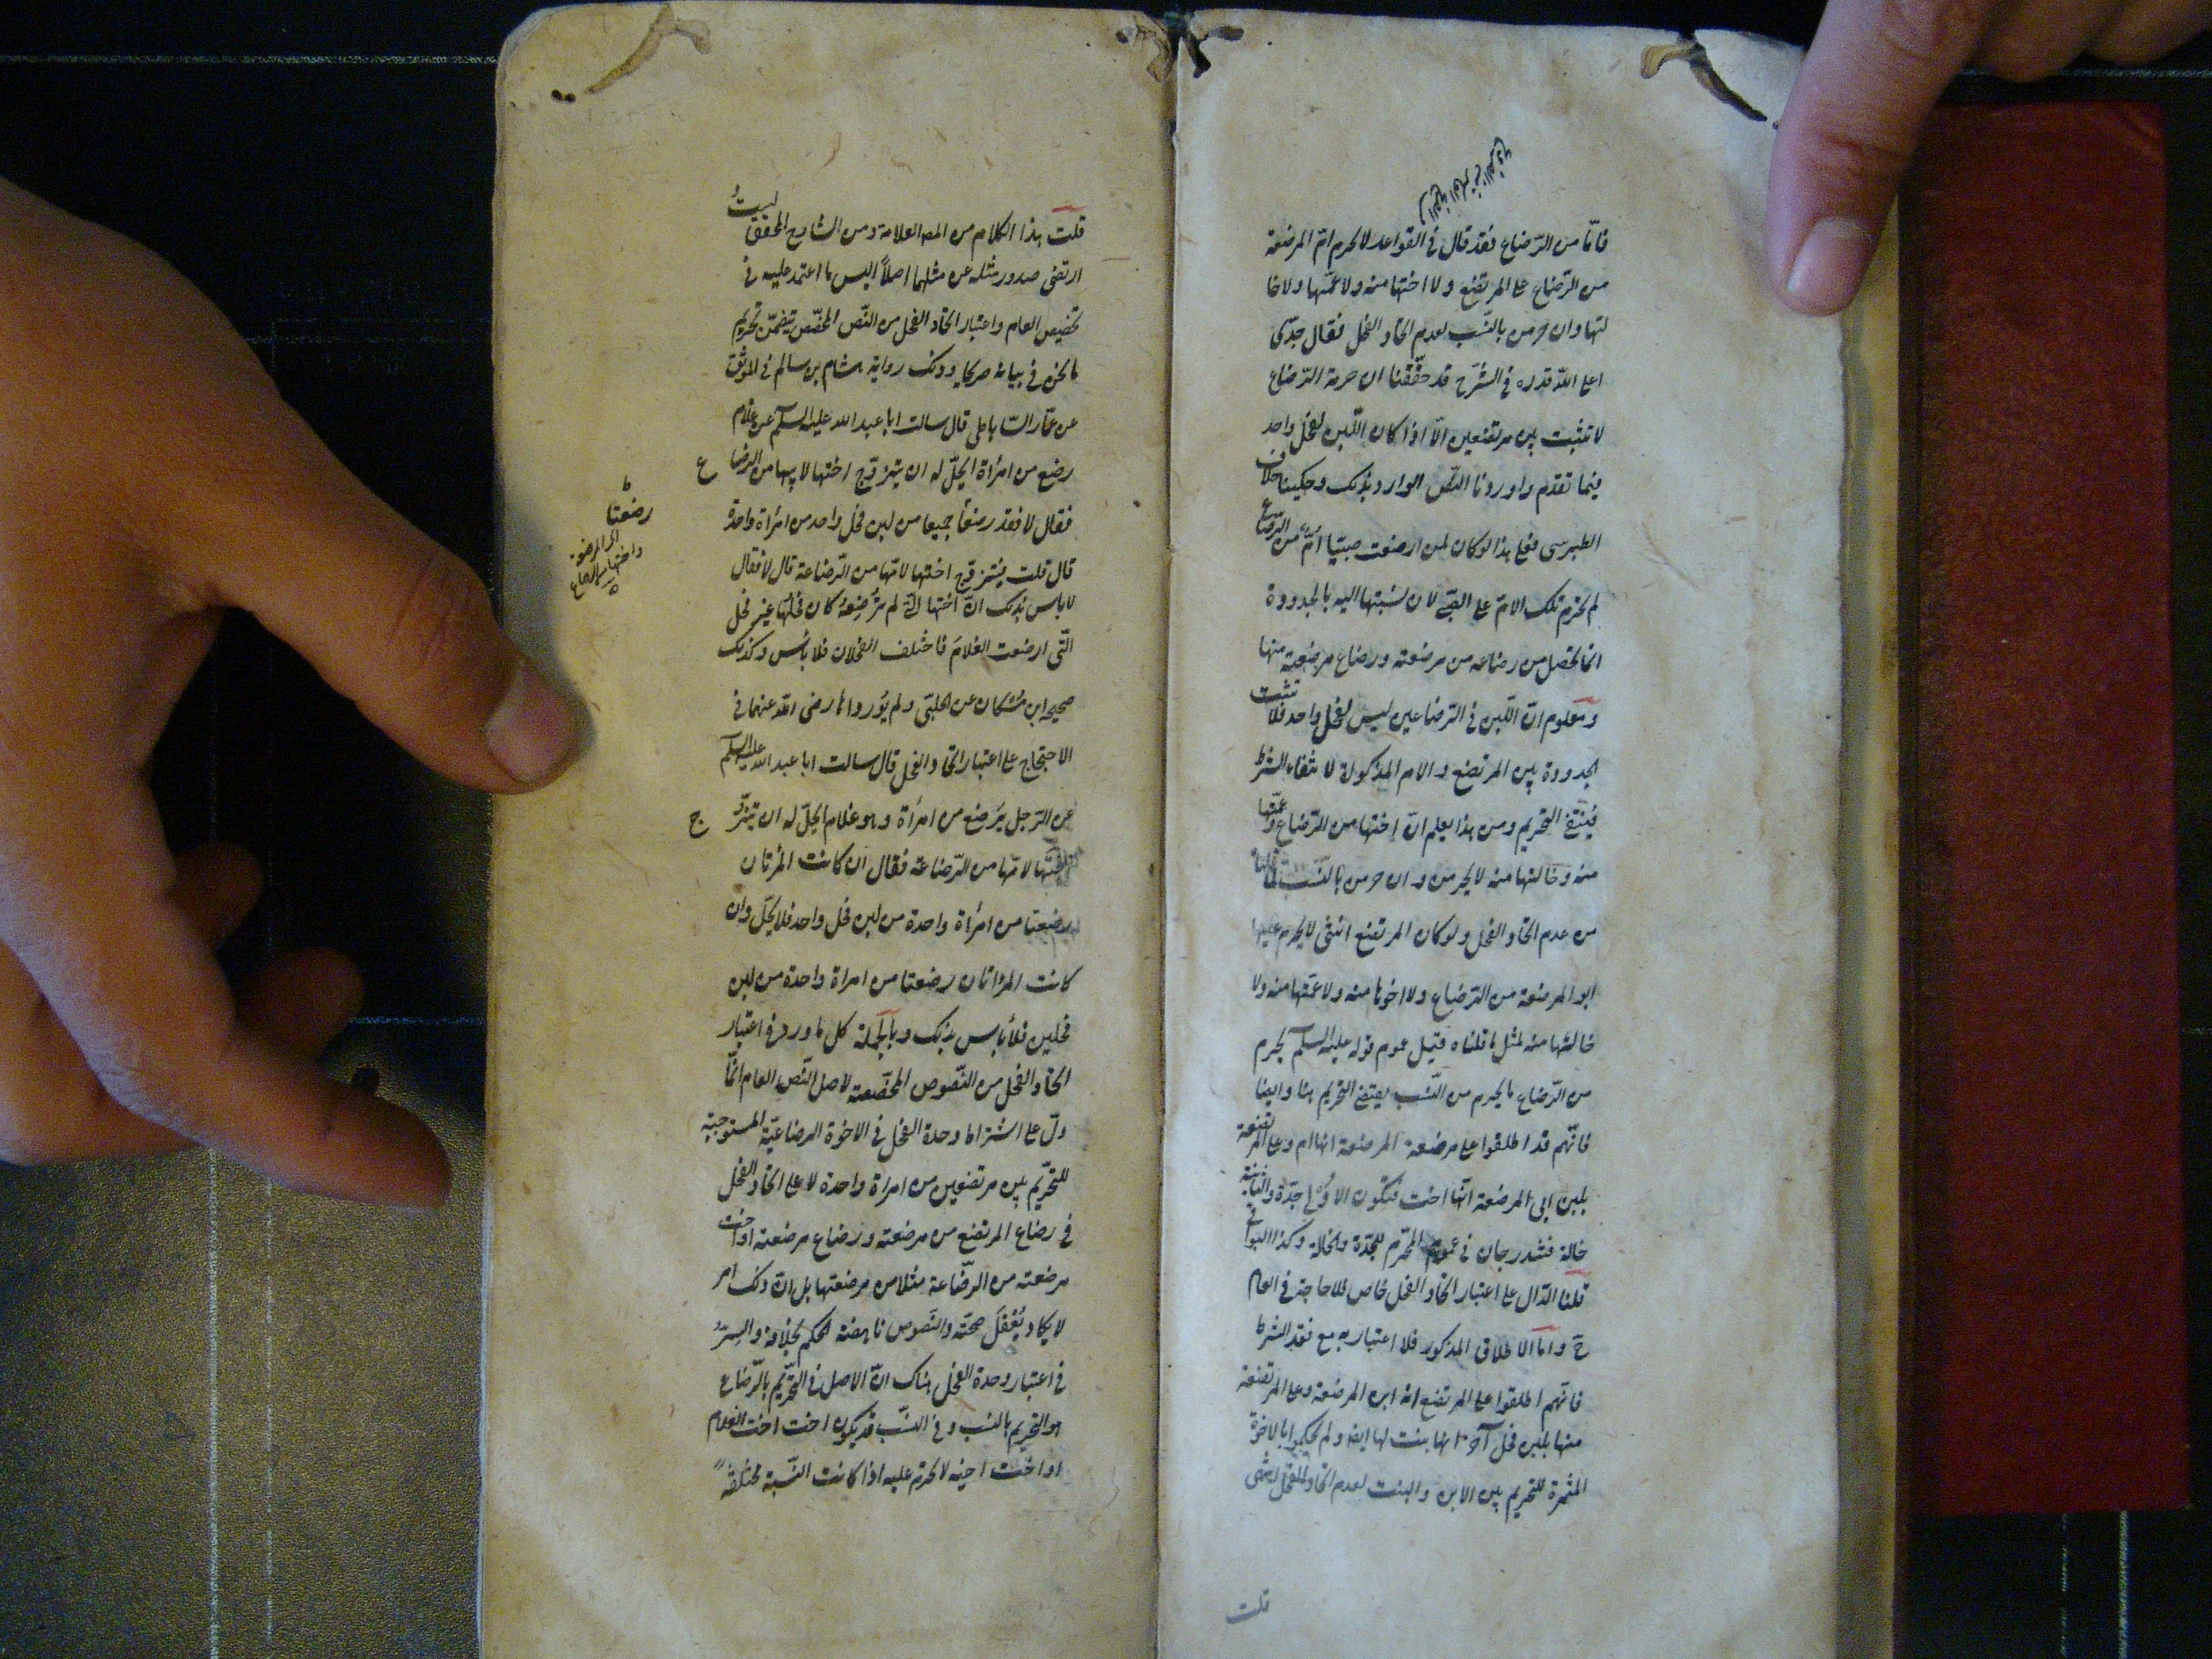 فاما من الرّضاع فقد قال في القواعد لا يحرم امّ المرضعة
من الرّضاع على المرتضع ولا اختها منه ولا عمّتها ولا خا
لتها وان حرمن بالنّسب لعدم اتحاد الفحل فقال جدّى
اعلى اللّه قدره في الشّرح قد حقّقنا ان حرمة الرّضاع
لا تثبت بين مرتضعين الّا اذا كان اللّبن لفحل واحد
فيما تقدّم واوردنا النّص الوارد بذلك وحكينا خلاف
الطبرسى فعلى هذا لو كان لمن ارضعت صبيّا امّ من الرّضاع
لم يحرم تلك الامّ على الصّبى لان نسبتها اليه بالجدودة
انما يحصل من رضاعه من مرضعته ورضاع مرضعته منها
ومعلوم انّ اللّبن في الرّضاعين ليس لفحل واحد فلا تثبت
الجدودة بين المرتضع والام المذكورة لانتفاء الشرط
فينتفى التحريم ومن هذا يعلم انّ اختها من الرّضاع وعمّتها
منه وخالتها منه لا يحرمن وان حرمن بالنّسب لما قلناه
من عدم اتحاد الفحل ولو كان المرتضع انثى لا يحرم عليها
ابو المرضعة من الرّضاع ولا اخوها منه ولا عمّها منه ولا
خالها منه لمثل ما قلناه فقيل عموم قوله عليه السلم يحرم
من الرّضاع ما يحرم من النّسب يقتضى التحريم هنا وايضا
فانّهم قد اطلقوا على مرضعة المرضعة انها ام وعلى المرتضعة
بلبن ابى المرضعة انّها اخت فتكون الاولى جدّة والثانية
خالة فتندرجان في عموم المحرّم للجدّة والخالة وكذا البواقى
قلنا الدّال على اعتبار اتحاد الفحل خاص فلا حاجة في العام
ح واما الاطلاق المذكور فلا اعتبار به مع فقد الشرط
فانّهم اطلقوا على المرتضع انه ابن المرضعة وعلى المرتضعة
منها بلبن فحل آخر انها بنت لها ايضا ولم يحكموا بالاخوة
المثمرة للتحريم بين الابن والبنت لعدم اتحاد الفحل انتهى
قلت
قلت هذا الكلام من المصـ العلامة ومن الشارح المحقق ليت
ارتضى صدور مثله عن مثلهما اصلاً اليس ما اعتمد عليه في
تخصيص العام واعتبار اتحاد الفحل من النّص المخصّص يتضمّن تحريم
ما نحن في بيانه صريحا وذلك رواية هشام بن سالم في الموثق
عن عمّار السّاباطى قال سالت ابا عبد الله عليه السلم عن غلام
رضع من امراة ايحلّ له ان يتزوّج اختها لابيها من الرضاع
فقال لا فقد رضعا جميعا من لبن فحل واحد من امراة واحدة
قال قلت فيتزوّج اختها لامّها من الرّضاعة قال لا فقال
لا باس بذلك انّ اختها الّتى لم ترضعه كان فحلها غير فحل
الّتى ارضعت الغلام فاختلف الفحلان فلا بأس وكذلك
صحيح ابن مسكان عن الحلبى ولم يورداها رضى اللّه عنهما في
الاحتجاج على اعتبار اتحاد الفحل قال سالت ابا عبد الله عليه السلم
عن الرّجل يرضع من امرأة وهو غلام ايحلّ له ان يتزوّج
اختها لامّها من الرّضاعة فقال ان كانت المرئتان
رضعتا من امرأة واحدة من لبن فحل واحد فلا يحلّ وان
كانت المراتان رضعتا من امراة واحدة من لبن
فحلين فلا باس بذلك وبالجملة كل ما ورد في اعتبار
اتحاد الفحل من النّصوص المخصّصة لاصل النّص العام انّما
دلّ على اشتراط وحدة الفحل في الاخوة الرضاعيّة المستوجبة
للتحريم بين مرتضعين من امراة واحدة لا على اتحاد الفحل
في رضاع المرتضع من مرضعته ورضاع مرضعته او اخت
مرضعته من الرضّاعة مثلا من مرضعتها بل انّ ذلك امر
لا يكاد يعقل صحّته والنّصوص ناهضة الحكم بخلافه والسرّ
في اعتبار وحدة الفحل هناك انّ الاصل في التحريم بالرّضاع
هو التحريم بالنسب وفي النّسب قد يكون اخت اخت الغلام
او اخت اخيه لا تحرم عليه اذا كانت النّسبة مختلفة
رضعتا